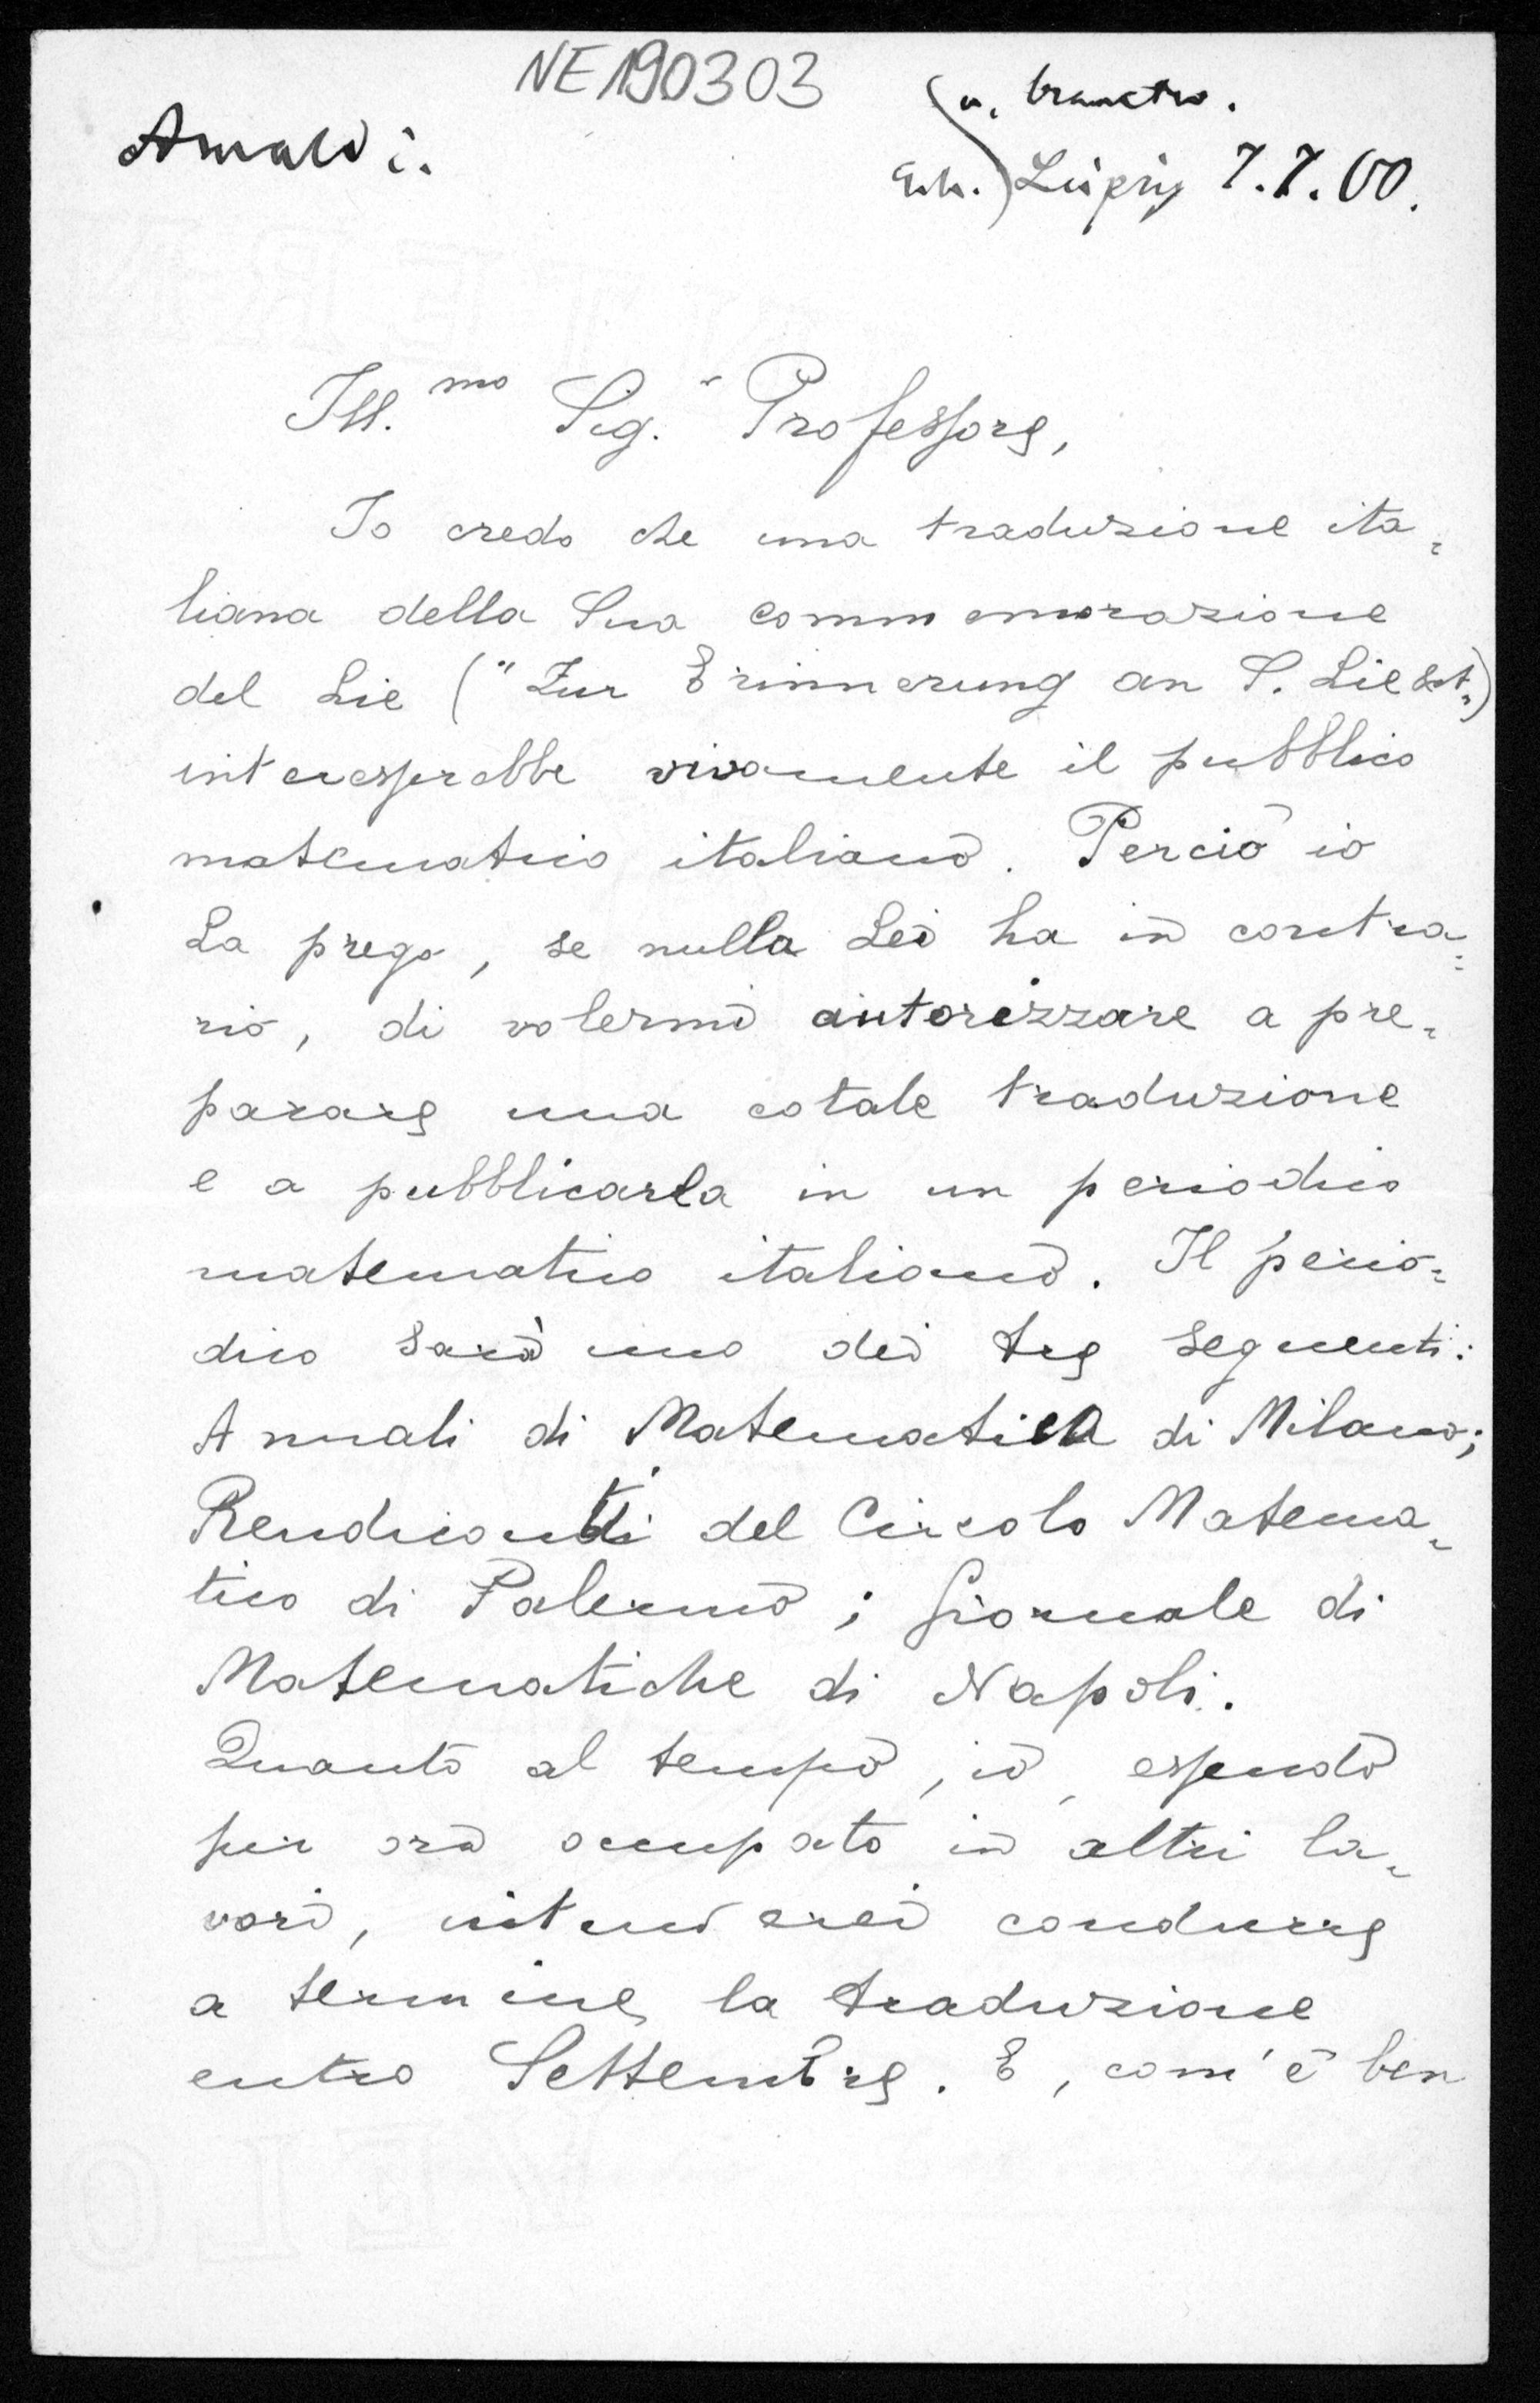 NE190303
Amaldi.
u. beantw.
Erh. Leipzig 7.7.00.
Ill.mo Sig.r Professore,
Io credo che una traduzione ita-
liana della Sua commemorazione
del Lie ("Zur Erinnerung an S. Lie ect.")
interesserebbe vivamente il pubblico
matematico italiano. Perciò io
La prego, se nulla Lei ha in contra-
rio, di volermi autorizzare a pre-
parare una cotale traduzione
e a pubblicarla in un periodico
matematico italiano. Il perio-
dico sarà uno dei tre seguenti:
Annali di Matematica di Milano;
Rendiconti del Circolo Matema-
tico di Palermo; Giornale di
Matematiche di Napoli.
Quanto al tempo, io, essendo
per ora occupato in altri la-
vori, intenderei condurre
a termine la traduzione
entro Settembre. E, com'è ben